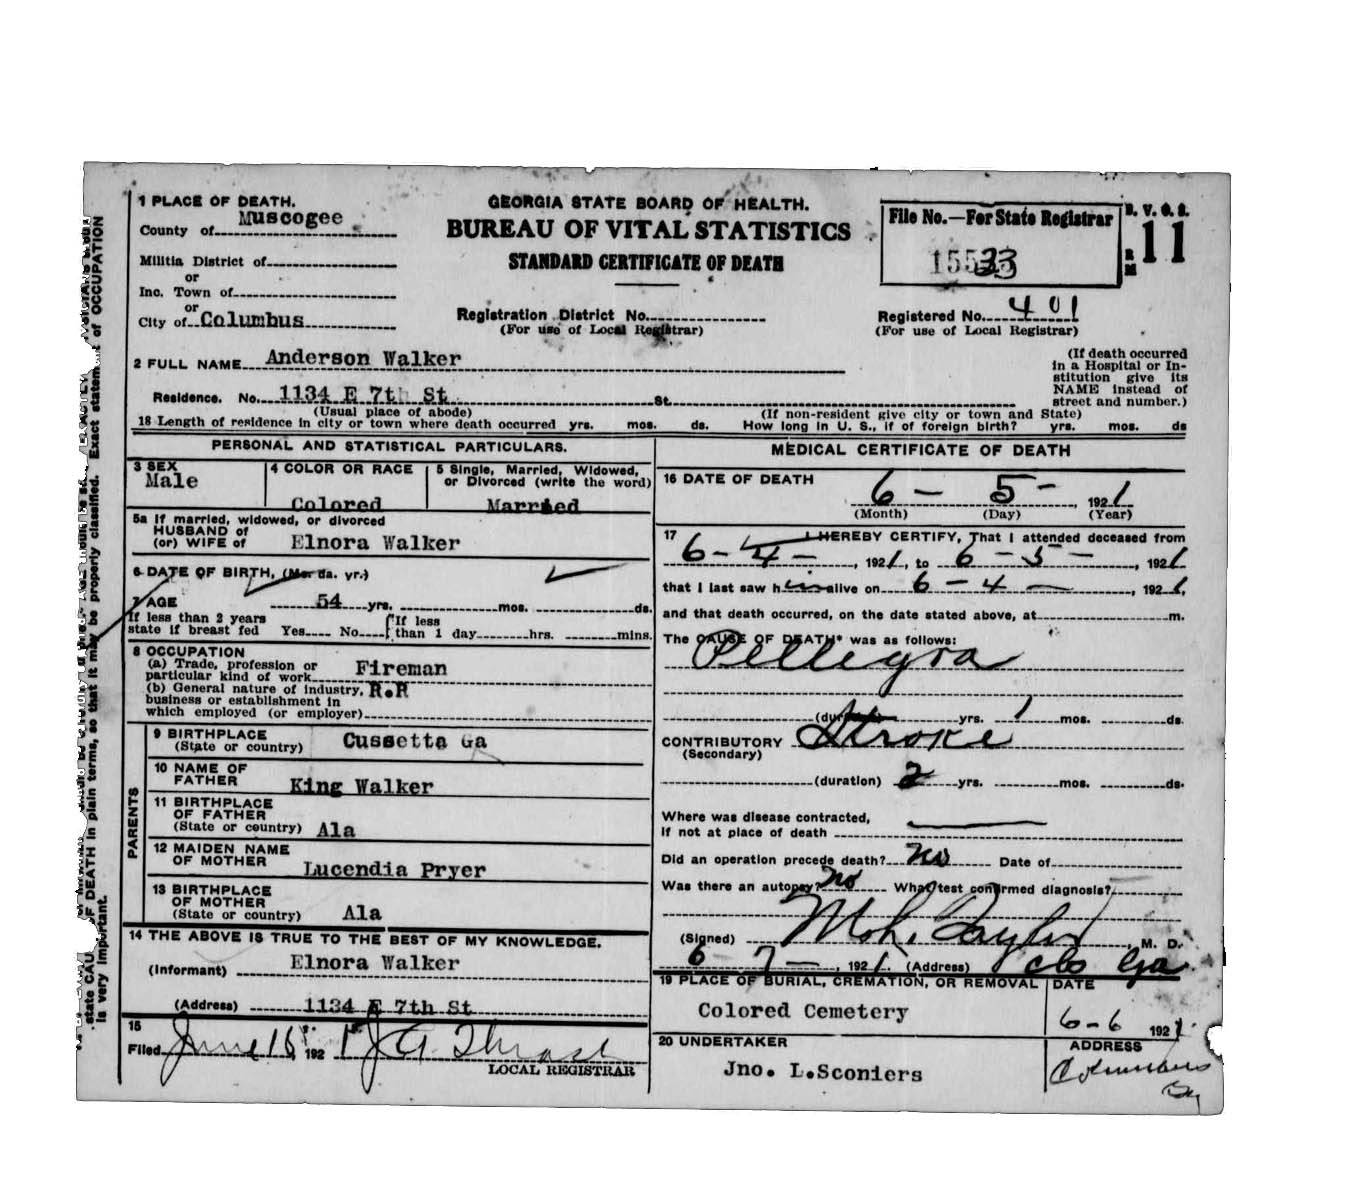 1 PLACE OF DEATH.
County of Muscogee
Militia District of
or
Inc. Town of
or
City of Columbus
GEORGIA STATE BOARD OF HEALTH.
BUREAU OF VITAL STATISTICS
STANDARD CERTIFICATE OF DEATH
Registration District No.
(For use of Local Registrar)
File No.—For State Registrar
B. V. O. S.
R M 11
Registered No. 401
(For use of Local Registrar)
2 FULL NAME Anderson Walker
Residence. No. 1134 E 7th St St.
(Usual place of abode)
(If non-resident give city or town and State)
(If death occurred
in a Hospital or In-
stitution give its
NAME instead of
street and number.)
18 Length of residence in city or town where death occurred yrs. mos. ds. How long in U. S., if of foreign birth? yrs. mos. ds
PERSONAL AND STATISTICAL PARTICULARS.
3 SEX
Male
4 COLOR OR RACE
Colored
5 Single, Married, Widowed,
or Divorced (write the word)
Married
5a If married, widowed, or divorced
HUSBAND of
(or) WIFE of Elnora Walker
6 DATE OF BIRTH, (Mo. da. yr.)
7 AGE 54 yrs. mos. ds.
If less than 2 years
state if breast fed Yes No
If less
than 1 day hrs. mins.
8 OCCUPATION
(a) Trade, profession or
particular kind of work Fireman
(b) General nature of industry, R.R
business or establishment in
which employed (or employer)
PARENTS
9 BIRTHPLACE
(State or country) Cussetta Ga
10 NAME OF
FATHER King Walker
11 BIRTHPLACE
OF FATHER
(State or country) Ala
12 MAIDEN NAME
OF MOTHER Lucendia Pryer
13 BIRTHPLACE
OF MOTHER
(State or country) Ala
14 THE ABOVE IS TRUE TO THE BEST OF MY KNOWLEDGE.
(Informant) Elnora Walker
(Address) 1134 E 7th St
15
Filed June 15 192 1 J A Thrash
LOCAL REGISTRAR
MEDICAL CERTIFICATE OF DEATH
16 DATE OF DEATH
6 - 5 - 1921
(Month) (Day) (Year)
17 I HEREBY CERTIFY, That I attended deceased from
6-4-, 1921, to 6-5-, 1921
that I last saw him alive on 6-4-, 1921,
and that death occurred, on the date stated above, at m.
The CAUSE OF DEATH* was as follows:
Pellegra
(duration) yrs. 1 mos. ds.
CONTRIBUTORY Stroke
(Secondary)
(duration) 2 yrs. mos. ds.
Where was disease contracted,
if not at place of death
Did an operation precede death? no Date of
Was there an autopsy? no What test confirmed diagnosis?
(Signed) Taylor, M. D.
6 7 -, 1921. (Address) Cbs Ga
19 PLACE OF BURIAL, CREMATION, OR REMOVAL
Colored Cemetery
DATE
6-6 1921.
20 UNDERTAKER
Jno. L.Sconiers
ADDRESS
Columbus
Ga
state CAUSE OF DEATH in plain terms, so that it may be properly classified. Exact statement of OCCUPATION
is very important.